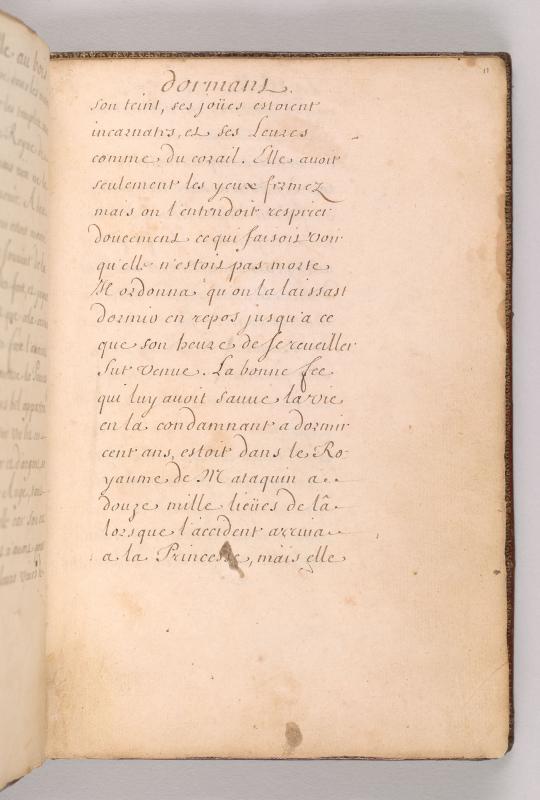 11
dormant.
son teint, ses joües estoient
incarnates, et ses Leures
comme du corail. Elle auoit
seulement les yeux fermez
mais on l'entendoit respirer
doucement ce qui faisoit voir
qu'elle n'estoit pas morte
Il ordonna qu'on la laissast
dormir en repos jusqu'a ce
que son heure de se reueiller
fut venue. La bonne fee
qui luy auoit sauué la vie
en la condamnant a dormir
cent ans, estoit dans le Ro-
yaume de Mataquin a
douze mille lieües de là
lorsque l'accident arriua
a la Princesse, mais elle